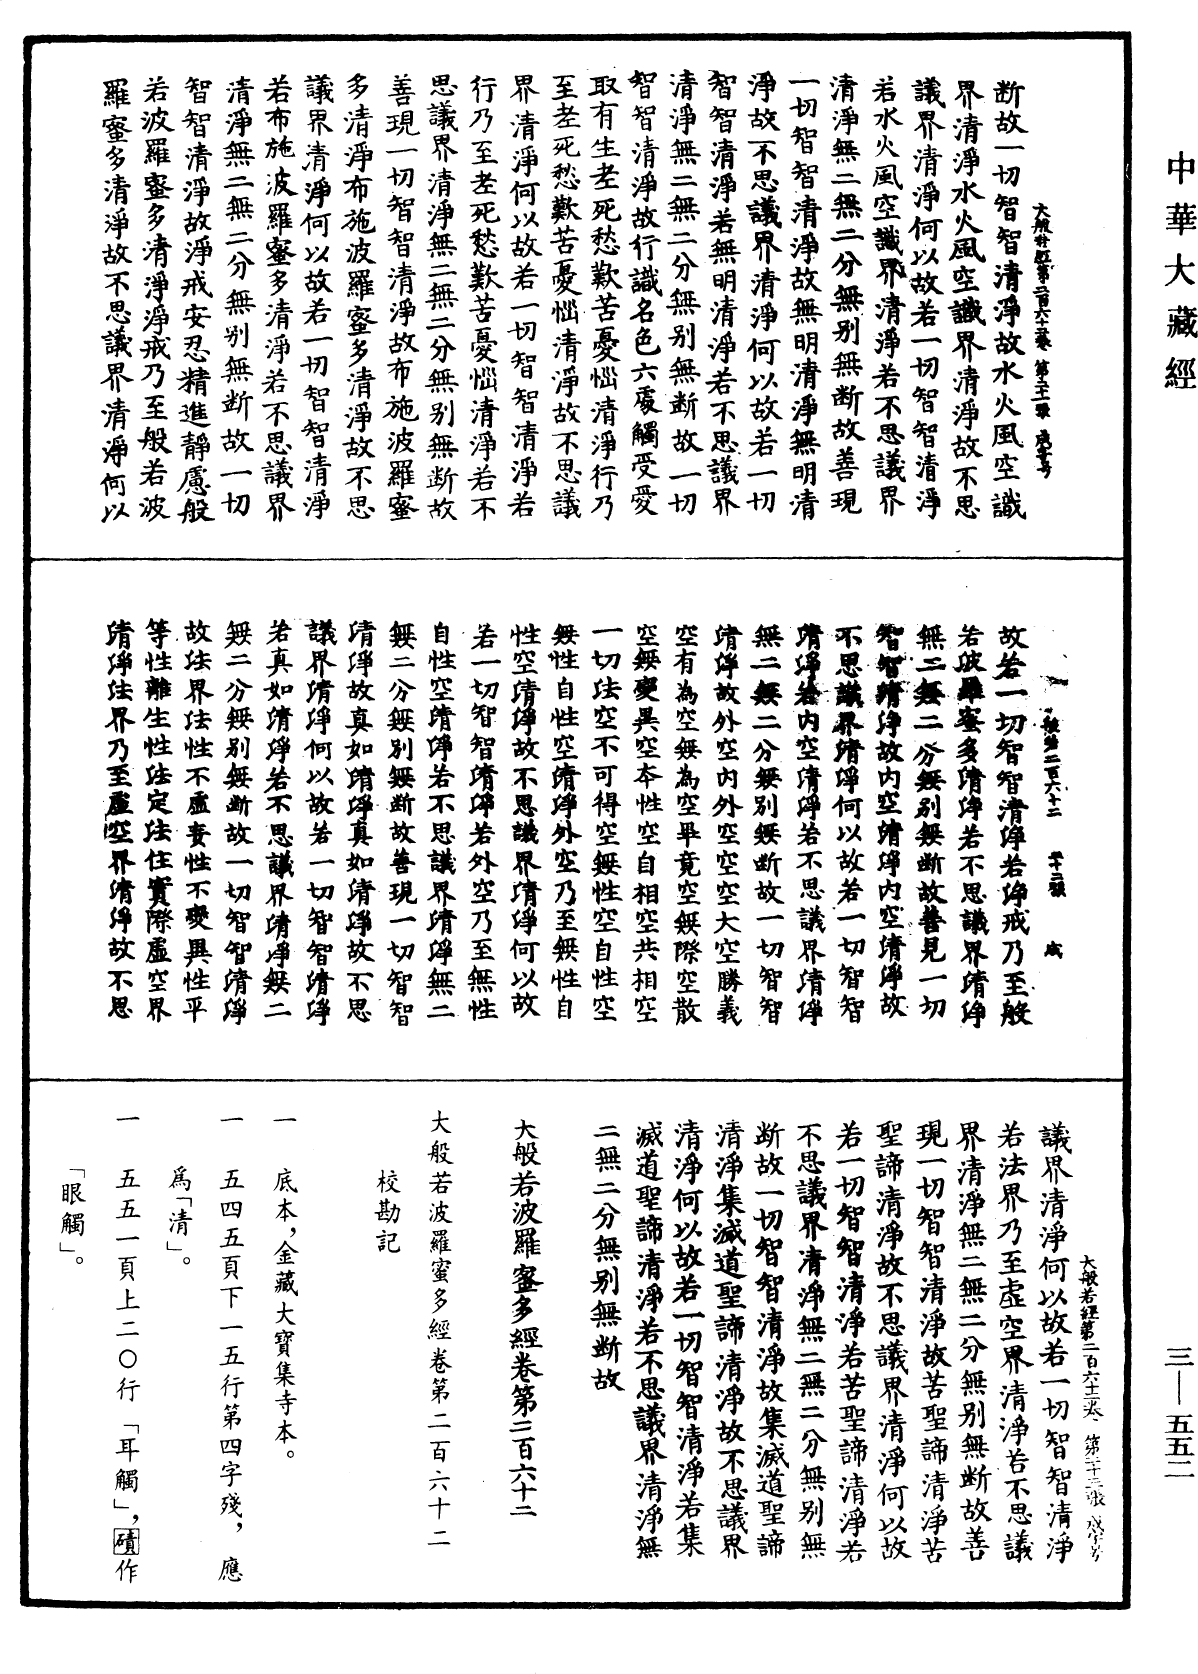 中華大藏經
三—五五二
大般若經第二百六十二卷 第二十一張 咸字号
断故一切智智清淨故水火風空識
界清淨水火風空識界清淨故不思
議界清淨何以故若一切智智清淨
若水火風空識界清淨若不思議界
清淨無二無二分無別無断故善現
一切智智清淨故無明清淨無明清
淨故不思議界清淨何以故若一切
智智清淨若無明清淨若不思議界
清淨無二無二分無別無断故一切
智智清淨故行識名色六處觸受愛
取有生老死愁歎苦憂惱清淨行乃
至老死愁歎苦憂惱清淨故不思議
界清淨何以故若一切智智清淨若
行乃至老死愁歎苦憂惱清淨若不
思議界清淨無二無二分無別無断故
善現一切智智清淨故布施波羅蜜
多清淨布施波羅蜜多清淨故不思
議界清淨何以故若一切智智清淨
若布施波羅蜜多清淨若不思議界
清淨無二無二分無別無断故一切
智智清淨故淨戒安忍精進靜慮般
若波羅蜜多清淨淨戒乃至般若波
羅蜜多清淨故不思議界清淨何以
般第二百六十二 二十二張 咸
故若一切智智清淨若淨戒乃至般
若波羅蜜多清淨若不思議界清淨
無二無二分無別無断故善見一切
智智清淨故內空清淨內空清淨故
不思議界清淨何以故若一切智智
清淨若內空清淨若不思議界清淨
無二無二分無別無断故一切智智
清淨故外空內外空空空大空勝義
空有為空無為空畢竟空無際空散
空無變異空本性空自相空共相空
一切法空不可得空無性空自性空
無性自性空清淨外空乃至無性自
性空清淨故不思議界清淨何以故
若一切智智清淨若外空乃至無性
自性空清淨若不思議界清淨無二
無二分無別無断故善現一切智智
清淨故真如清淨真如清淨故不思
議界清淨何以故若一切智智清淨
若真如清淨若不思議界清淨無二
無二分無別無断故一切智智清淨
故法界法性不虛妄性不變異性平
等性離生性法定法住實際虛空界
清淨法界乃至虛空界清淨故不思
大般若經第二百六十二卷 第二十三張 咸字号
議界清淨何以故若一切智智清淨
若法界乃至虛空界清淨若不思議
界清淨無二無二分無別無断故善
現一切智智清淨故苦聖諦清淨苦
聖諦清淨故不思議界清淨何以故
若一切智智清淨若苦聖諦清淨若
不思議界清淨無二無二分無別無
断故一切智智清淨故集滅道聖諦
清淨集滅道聖諦清淨故不思議界
清淨何以故若一切智智清淨若集
滅道聖諦清淨若不思議界清淨無
二無二分無別無断故
大般若波羅蜜多經卷第二百六十二
大般若波羅蜜多經卷第二百六十二
校勘記
一 底本，金藏大寶集寺本。
一 五四五頁下一五行第四字殘，應
爲「清」。
一 五五一頁上二〇行「耳觸」，磧作
「眼觸」。